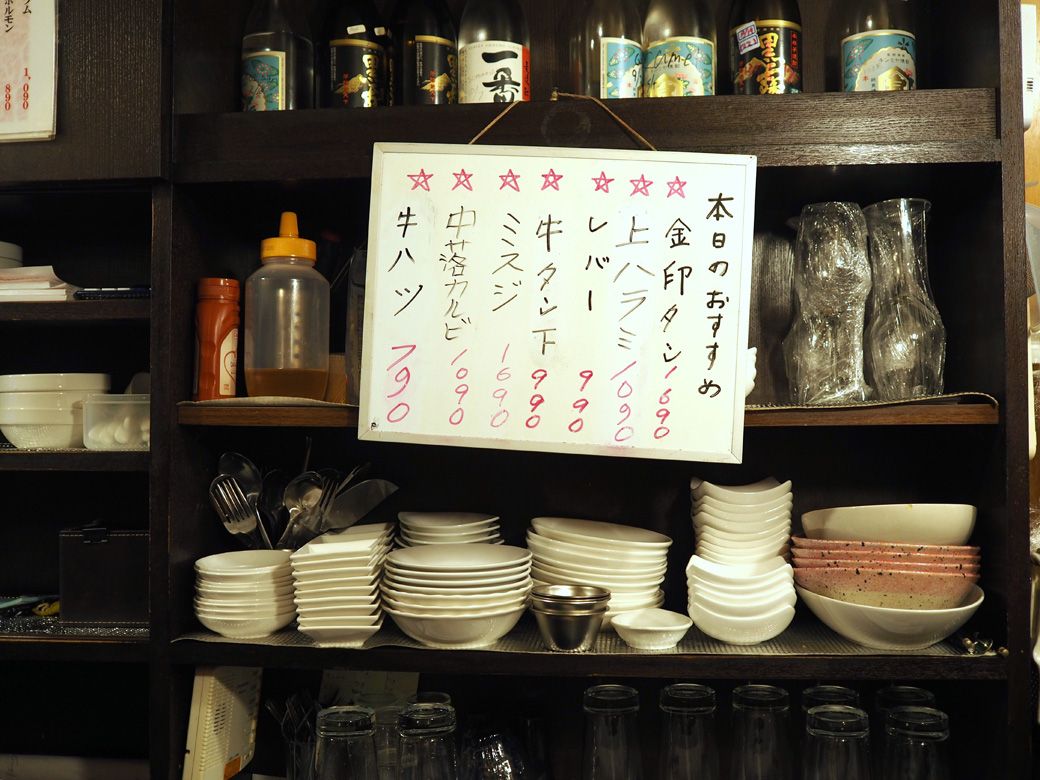 本日のおすすめ
☆金印タン 1690
☆上ハラミ 1090
☆レバー 990
☆牛タン下 990
☆ミスジ 1690
☆中落カルビ 1090
☆牛ハツ 790
ラム 1,090
ホルモン 890
一番